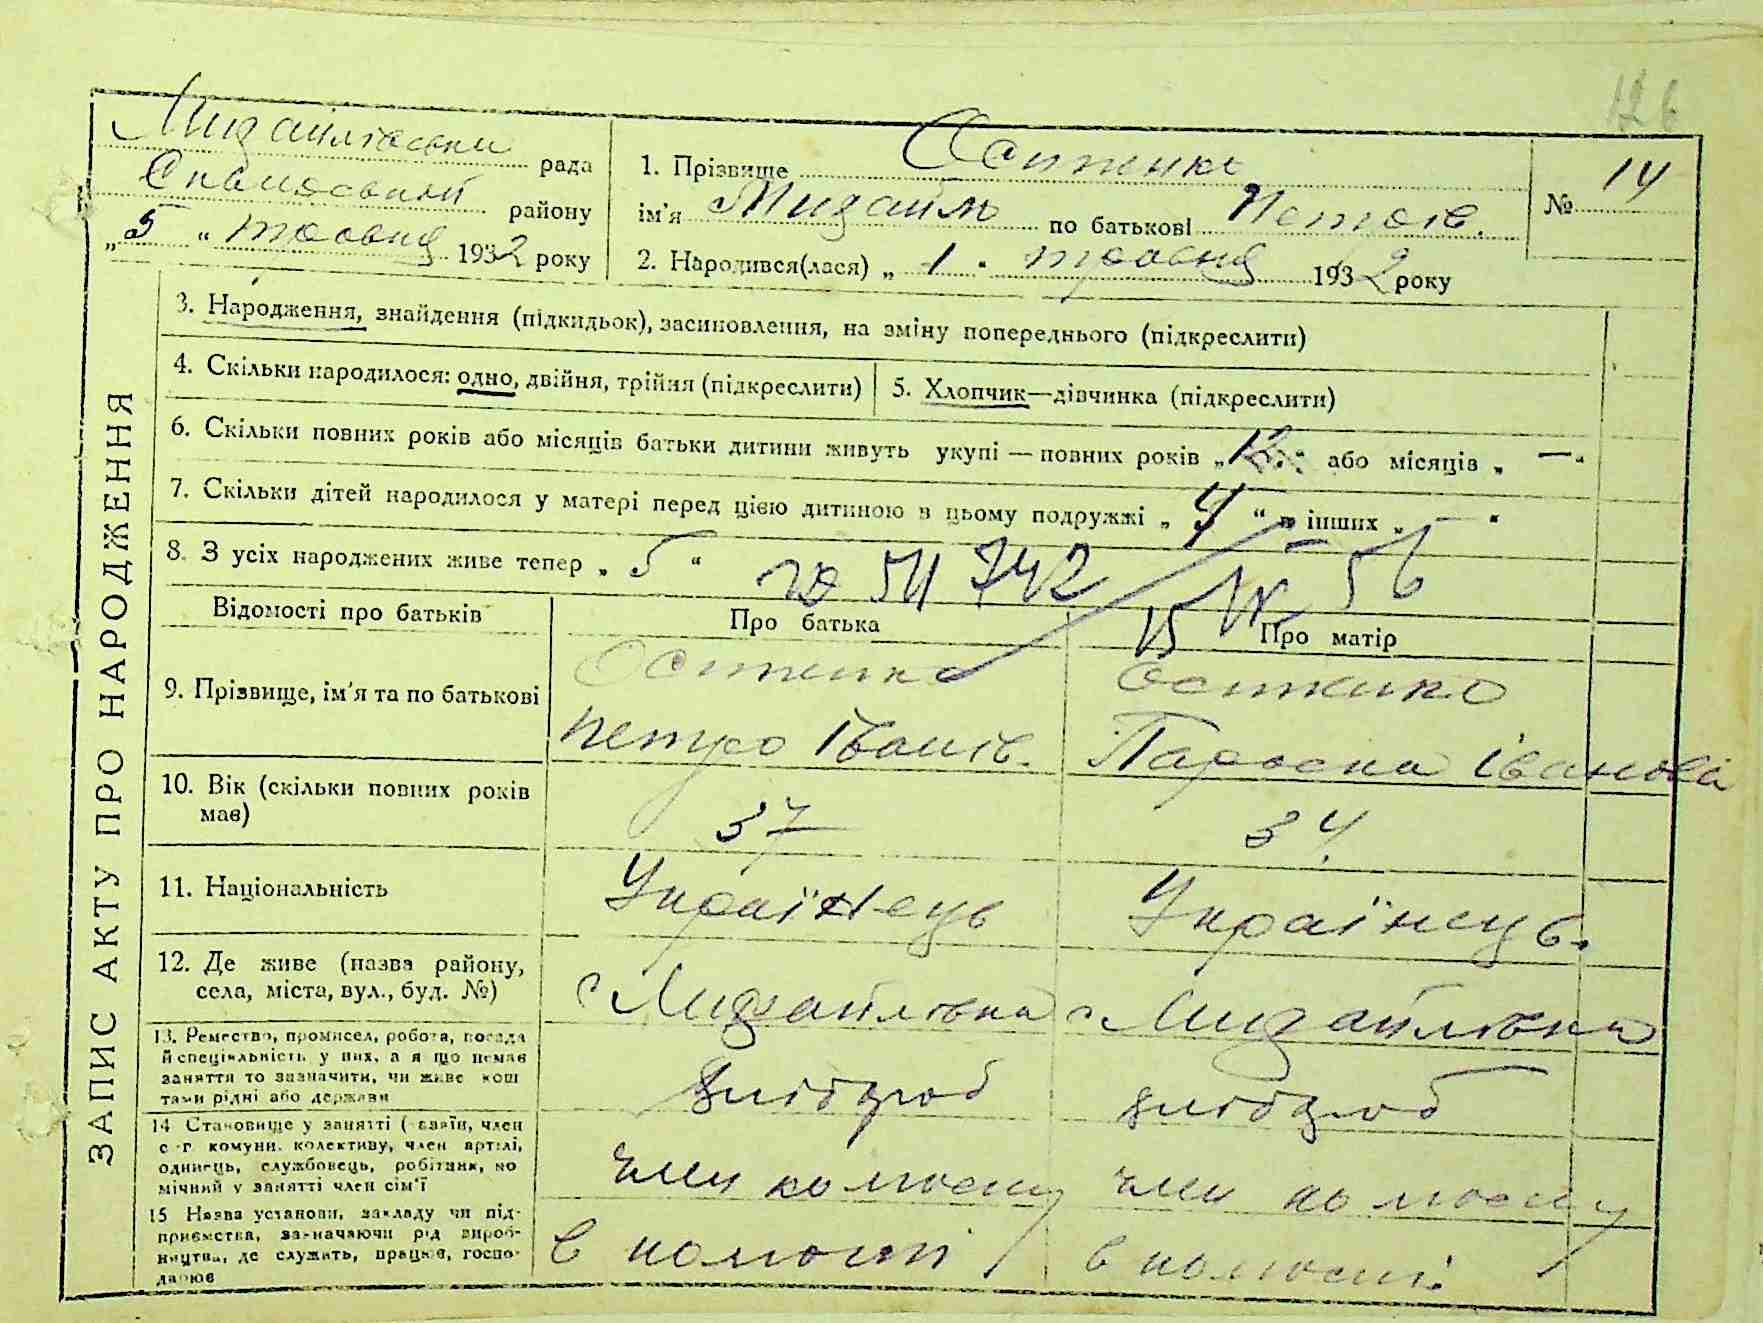 126
Михайлівськи рада
району
„5“ травня 1932 року
1. Прізвище Осипенко
ім'я Михайло по батькові Петров.
2. Народився(лася) „1“ травня 1932 року
№ 14
ЗАПИС АКТУ ПРО НАРОДЖЕННЯ
3. Народження, знайдення (підкидьок), засиновлення, на зміну попереднього (підкреслити)
4. Скільки народилося: одно, двійня, трійня (підкреслити)
5. Хлопчик—дівчинка (підкреслити)
6. Скільки повних років або місяців батьки дитини живуть укупі — повних років „12.“ або місяців „—“
7. Скільки дітей народилося у матері перед цією дитиною в цьому подружжі „4“ в інших „—“
8. З усіх народжених живе тепер „5“
54 742
15 IX 56
Відомості про батьків
Про батька
Про матір
9. Прізвище, ім'я та по батькові
Осипенко
Петро Іванів.
Осипенко
Параска Іванова
10. Вік (скільки повних років має)
37
34
11. Національність
Українець
Українець.
12. Де живе (назва району, села, міста, вул., буд. №)
с Михайлівка
с Михайлівка
13. Ремество, промисел, робота, посада
й спеціяльність у них, а я що немає
заняття то зазначити, чи живе кош
тами рідні або держави
хлібороб
хлібороб
14 Становище у занятті (хазяїн, член
с-г комуни, колективу, член артілі,
одинець, службовець, робітник, по
мічний у занятті член сім'ї
член колгоспу
член колгоспу
15 Назва установи, закладу чи під-
приємства, зазначаючи рід вироб-
ництва, де служить, працює, госпо-
дарює
в колгоспі
в колгоспі.